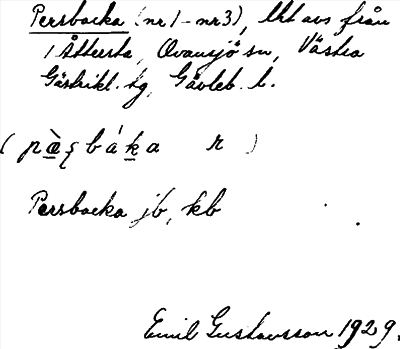 Persbacka (nr 1 - nr 3), lht avs från
1 Åttersta, Ovansjö sn, Västra
Gästrikl. tg, Gävleb. l.
( pæ̀ʂbáka r )
Persbacka jb, kb
Emil Gustavsson 1929.